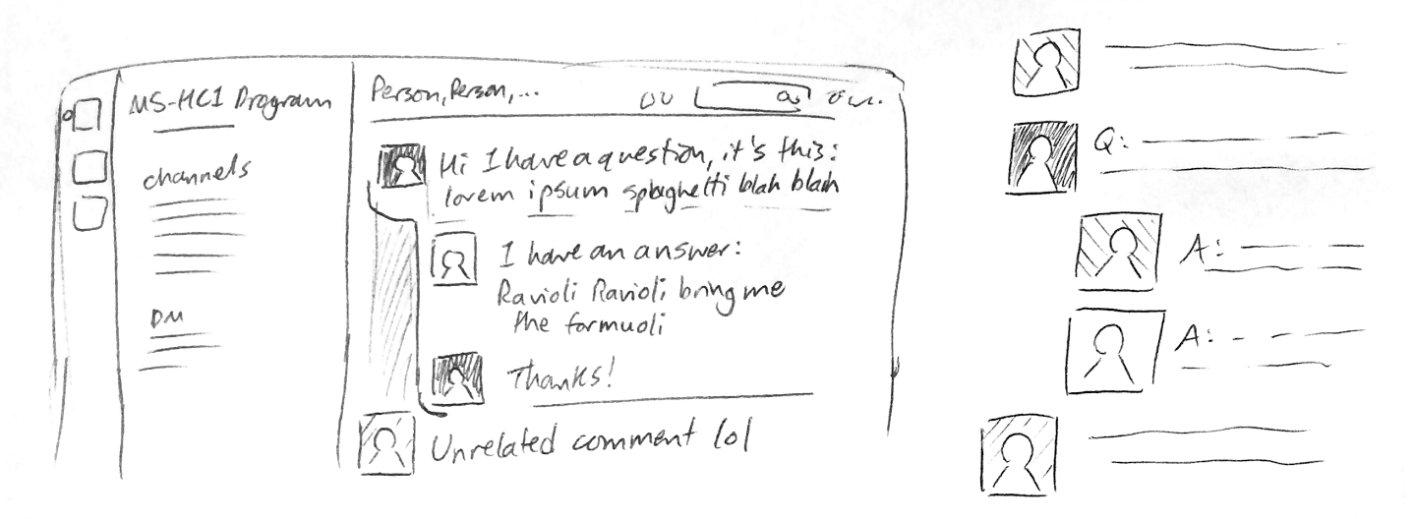 MS-HCI Program
channels
DM
Person, Person, ...
Hi I have a question, it's this:
lorem ipsum spaghetti blah blah
I have an answer:
Ravioli Ravioli bring me
the formuoli
Thanks!
Unrelated comment lol
Q:
A:
A: